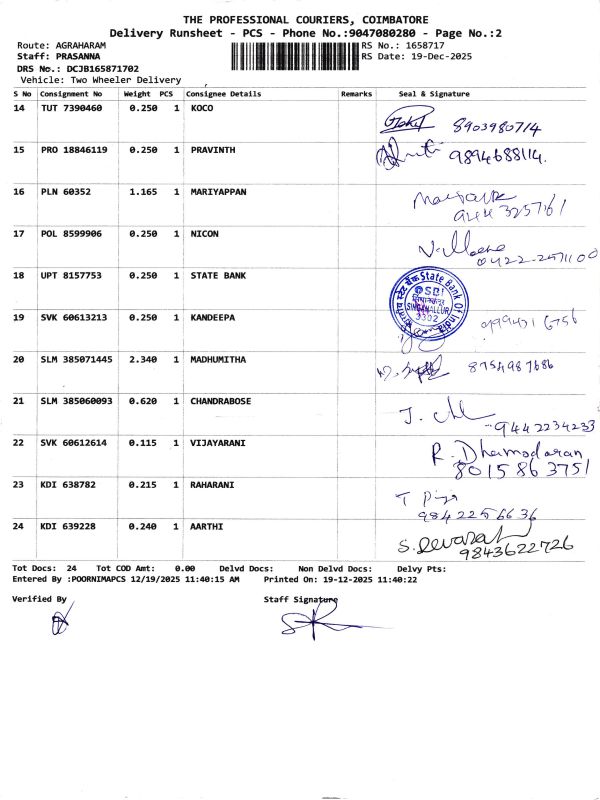 THE PROFESSIONAL COURIERS, COIMBATORE
Delivery Runsheet - PCS - Phone No.:9047080280 - Page No.:2
Route: AGRAHARAM RS No.: 1658717
Staff: PRASANNA RS Date: 19-Dec-2025
DRS No.: DCJB165871702
Vehicle: Two Wheeler Delivery
S No Consignment No Weight PCS Consignee Details Remarks Seal & Signature
14 TUT 7390460 0.250 1 KOCO
8903980714
15 PRO 18846119 0.250 1 PRAVINTH
9894688114.
16 PLN 60352 1.165 1 MARIYAPPAN
944 325761
17 POL 8599906 0.250 1 NICON
0422-2571100
18 UPT 8157753 0.250 1 STATE BANK
State Bank Of India
SBI
SINGANALLUR
3302
19 SVK 60613213 0.250 1 KANDEEPA
20 SLM 385071445 2.340 1 MADHUMITHA
8754987686
21 SLM 385060093 0.620 1 CHANDRABOSE
9442234233
22 SVK 60612614 0.115 1 VIJAYARANI
R. Dhamodaran
8015863751
23 KDI 638782 0.215 1 RAHARANI
T Priya
9842256636
24 KDI 639228 0.240 1 AARTHI
S. Devaraj
9843622726
Tot Docs: 24 Tot COD Amt: 0.00 Delvd Docs: Non Delvd Docs: Delvy Pts:
Entered By :POORNIMAPCS 12/19/2025 11:40:15 AM Printed On: 19-12-2025 11:40:22
Verified By Staff Signature